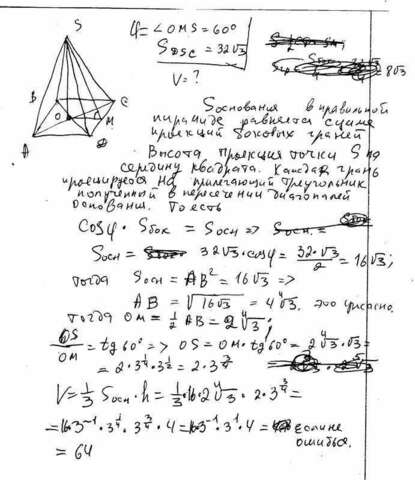 S
φ = ∠OMS = 60°
S_DSC = 32√3
V = ?
8√3
B
C
O
M
A
S основания в правильной
пирамиде равняется сумме
проекций боковых граней
Высота проекция точки S на
середину квадрата. Каждая грань
проецируется на прилегающий треугольник
полученной в пересечении диагоналей
основания. То есть
cosφ · Sбок = Sосн =>
Sосн = 32√3 · cosφ = 32·√3/2 = 16√3;
тогда Sосн = AB² = 16√3 =>
AB = √16√3 = 4∜3. это ужасно.
тогда OM = 1/2 AB = 2∜3;
OS/OM = tg 60° => OS = OM · tg 60° = 2∜3·√3 =
= 2·3^(1/4)·3^(1/2) = 2·3^(3/4)
V = 1/3 Sосн · h = 1/3 · 16 · 2∜3 · 2·3^(3/4) =
= 16·3^(-1)·3^(1/4)·3^(3/4)·4 = 16·3^(-1)·3^1·4 = если не
ошибься.
= 64